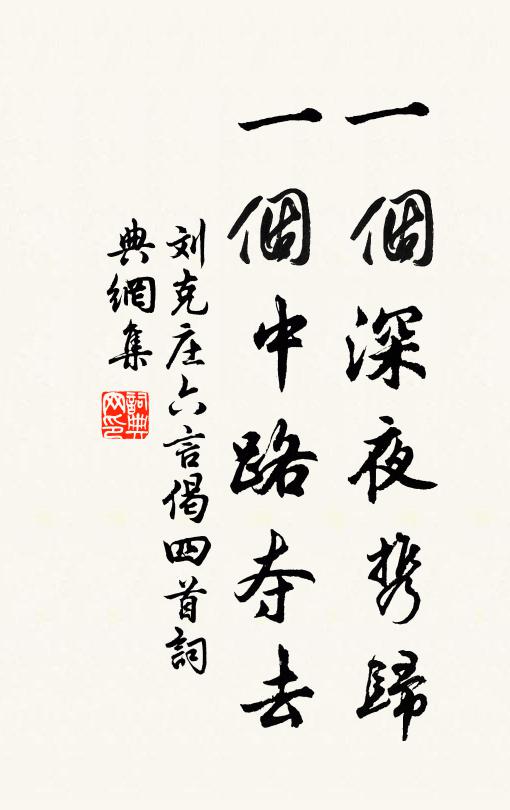 一個深夜携歸
一個中路夺去
刘克庄六言偈四首詞
典網集
詞典
网印